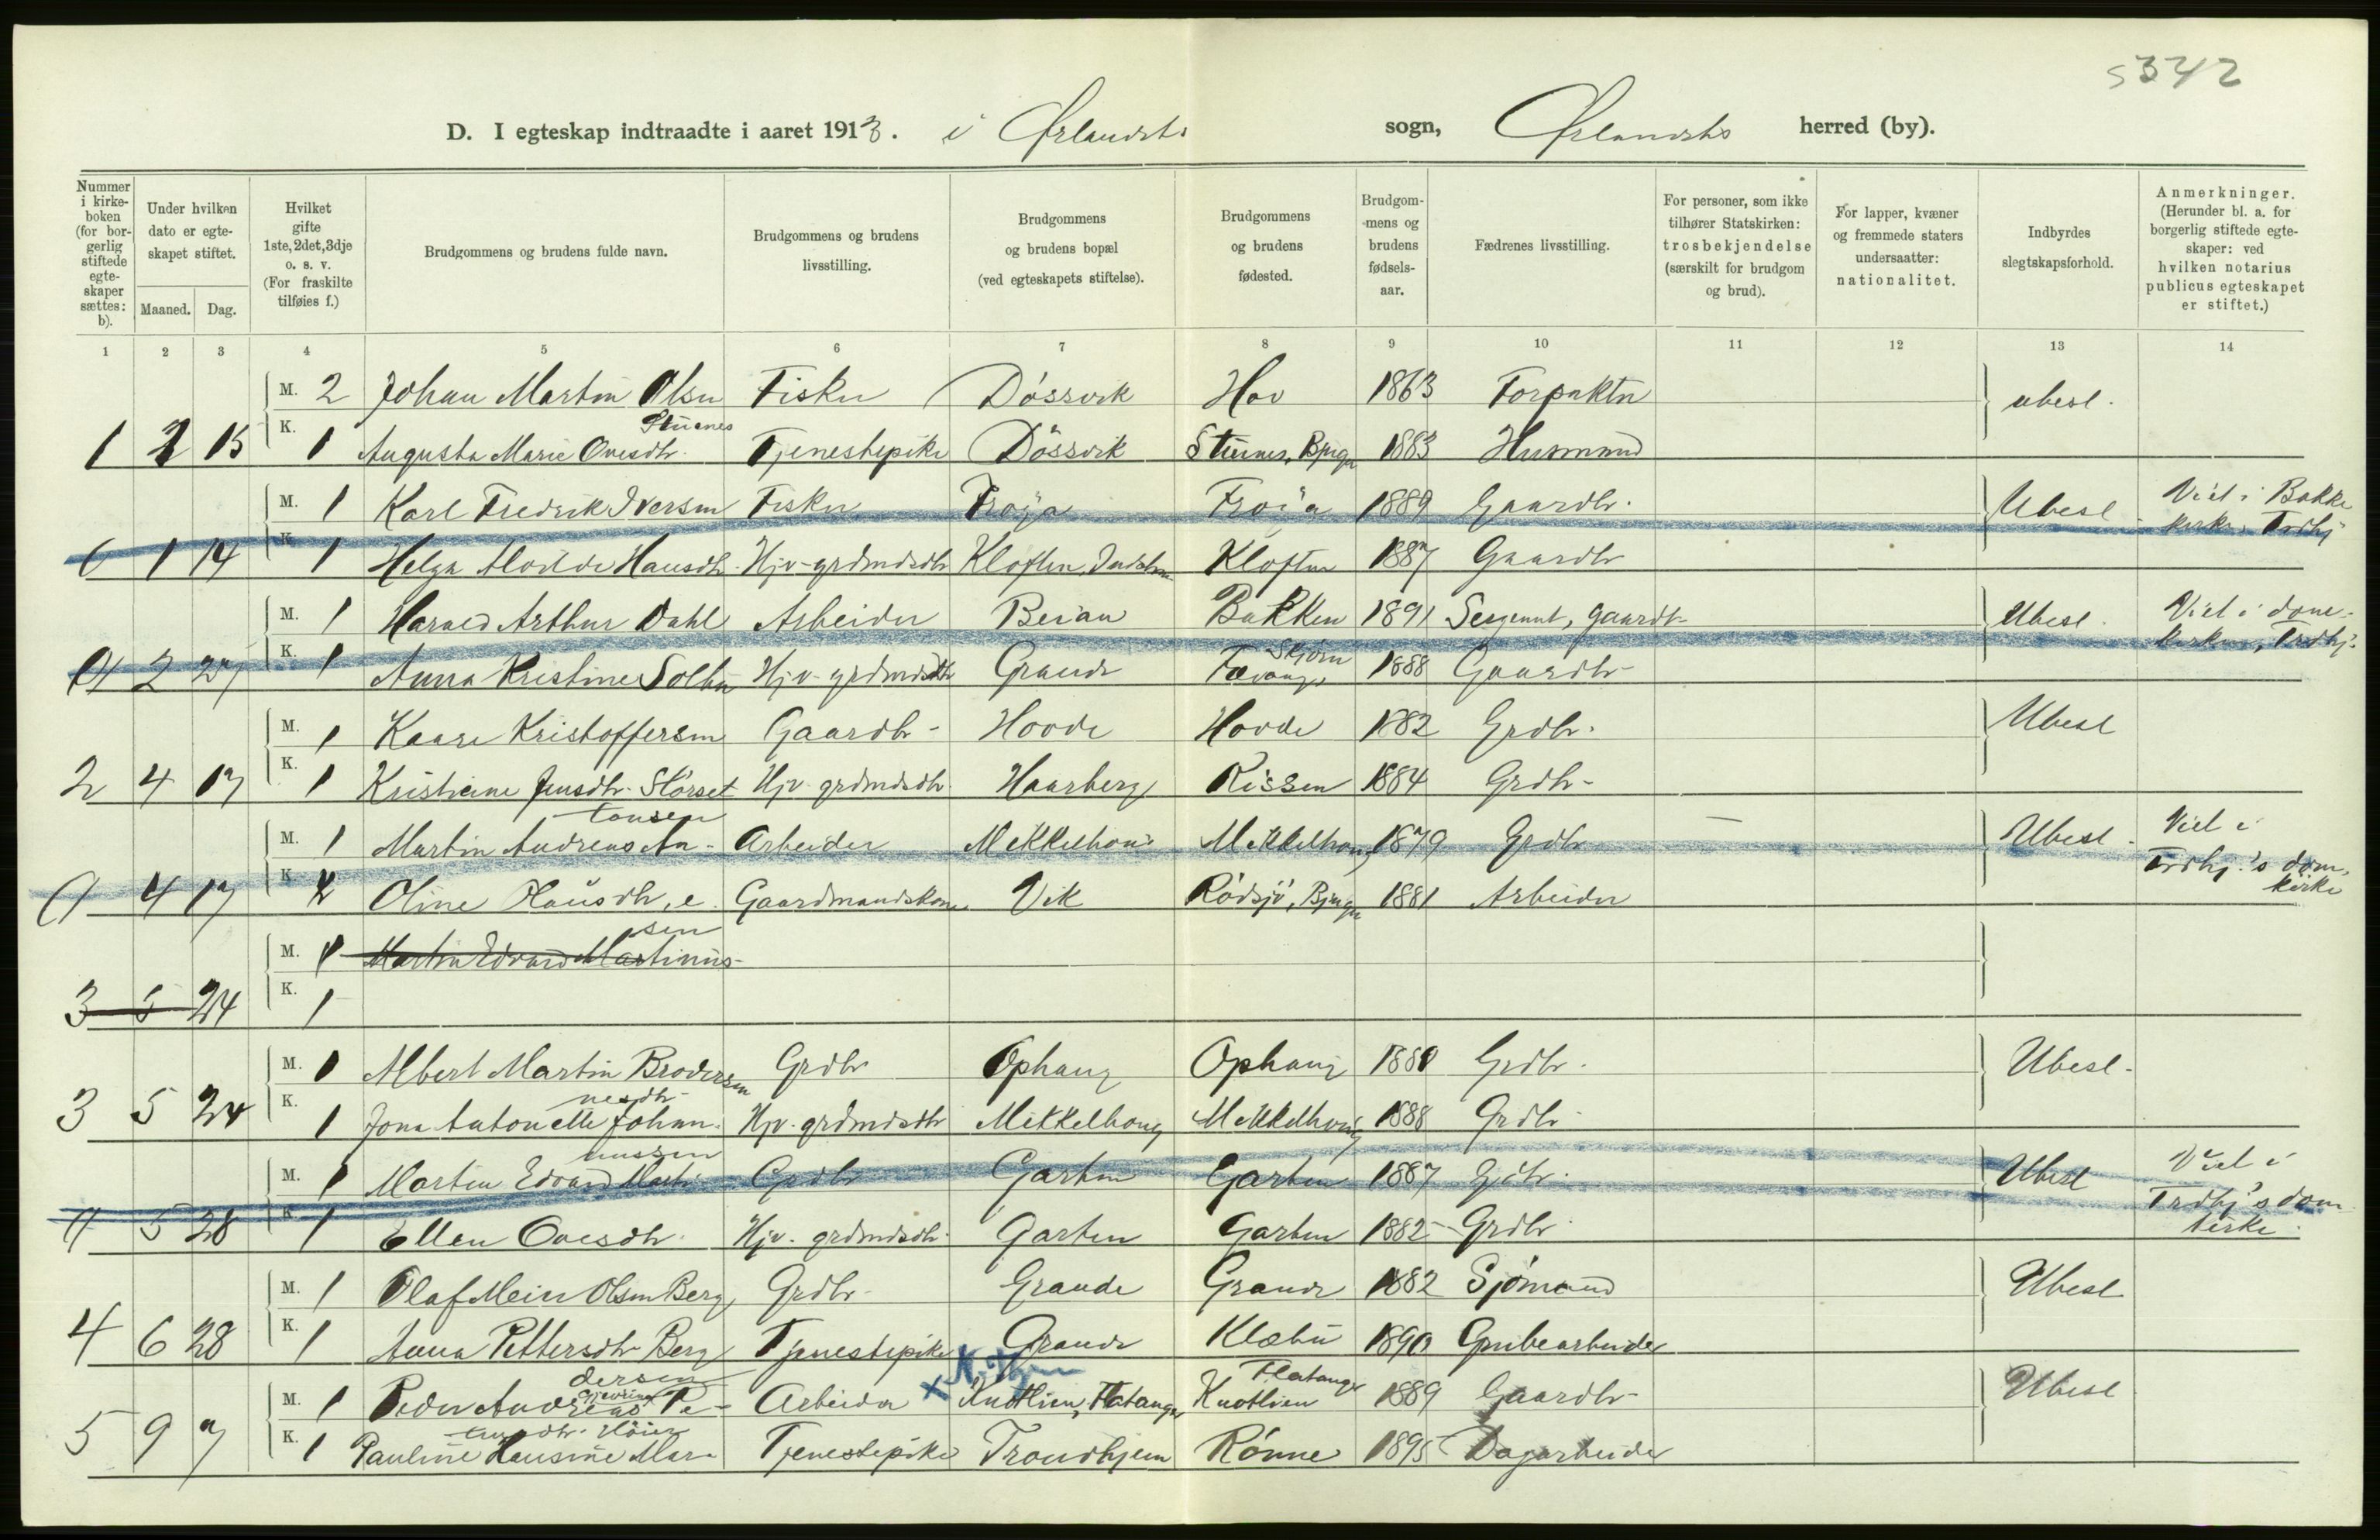 5342
D. I egteskap indtraadte i aaret 1913. i Ørlandets sogn, Ørlandets herred (by).
Nummer i kirkeboken (for borgerlig stiftede egteskaper sættes: b).
Under hvilken dato er egteskapet stiftet.
Maaned. Dag.
Hvilket gifte 1ste, 2det, 3dje o. s. v. (For fraskilte tilføies f.)
Brudgommens og brudens fulde navn.
Brudgommens og brudens livsstilling.
Brudgommens og brudens bopæl (ved egteskapets stiftelse).
Brudgommens og brudens fødested.
Brudgommens og brudens fødselsaar.
Fædrenes livsstilling.
For personer, som ikke tilhører Statskirken: trosbekjendelse (særskilt for brudgom og brud).
For lapper, kvæner og fremmede staters undersaatter: nationalitet.
Indbyrdes slegtskapsforhold.
Anmerkninger. (Herunder bl. a. for borgerlig stiftede egteskaper: ved hvilken notarius publicus egteskapet er stiftet.)
1 2 3 4 5 6 7 8 9 10 11 12 13 14
M. 2 Johan Martin Olsen Fisker Døssvik Hov 1863 Forpakter ubesl.
Stüenes
1 2 15 K. 1 Augusta Marie Ovesdtr. Tjenestepike Døssvik Stüenes, Bjugn 1883 Husmand
M. 1 Karl Fredrik Iversen Fisker Frøya Frøya 1889 Gaardbr. Ubesl Viet i Bakke kirke, Trdhj
0 1 14 K. 1 Helga Hansdtr. Hjv-grdmdsdtr Kloften Kloften 1887 Gaardbr
M. 1 Harald Arthur Dahl Arbeider Beian Bakken 1891 Sergeant, gaardb. Ubesl. Viet i domkirken, Trdhj.
Skjørn
0 2 27 K. 1 Anna Kristine Solbü Hjv-grdmdsdtr Grande 1888 Gaardbr
M. 1 Kaare Kristoffersen Gaardbr- Hovde Hovde 1882 Grdbr. Ubesl
2 4 17 K. 1 Kristiane Jensdtr. Størset Hjv-grdmdsdtr. Haarberg Rissen 1884 Grdbr-
tonsen
M. 1 Martin Andreas An- Arbeider Mekkelhoug Mekkelhoug 1879 Grdbr Ubesl- Viet i Trdhj.'s domkirke
0 4 17 K. 2 Oline Olausdtr, e. Gaardmandskone Vik Rødsjø, Bjugn 1881 Arbeider
sen
M. 1 Martin Edvard Martinüs-
3 5 24 K. 1
M. 1 Albert Martin Brodersen Grdbr Ophaug Ophaug 1880 Grdbr. Ubesl-
nesdtr-
3 5 24 K. 1 Jona Antonette Johan- Hjv-grdmdsdtr Mekkelhoug Mekkelhoug 1888 Grdbr
nussen
M. 1 Martin Edvard Marti- Grdbr Garten Garten 1887 Grdbr. Ubesl Viet i Trdhj's domkirke.
0 5 28 K. 1 Ellen Ovesdtr. Hjv-grdmdsdtr. Garten Garten 1882 Grdbr
M. 1 Olaf Mein Olsen Berg Grdbr- Grande Grande 1882 Sjømand Ubesl
4 6 28 K. 1 Anna Pettersdtr Berg Tjenestepike Grande Klæbü 1890 Grubearbeider
dersen Flatanger
M. 1 Peder Andreas Pe- Arbeider x Knotlien, Flatanger Knotlien 1889 Gaardbr- Ubesl
5 9 7 K. 1 Pauline Hansine Mar- Tjenestepike Trondhjem Rønne 1895 Dagarbeider